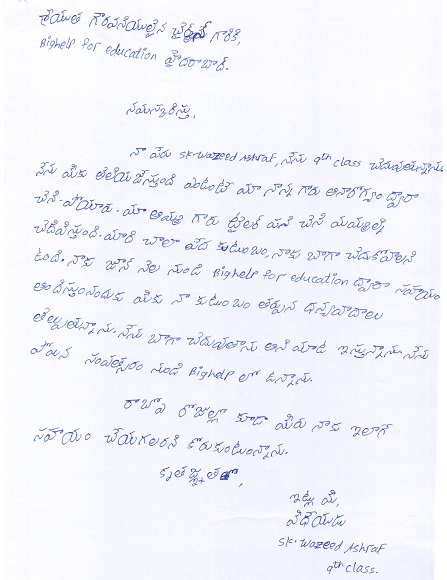 శ్రీయుత గౌరవనీయులైన ఛైర్మన్ గారికి,
Bighelp for education హైదరాబాద్.
నమస్కరిస్తు,
నా పేరు SK.Wazeed Ashraf, నేను 9th class చదువుతున్నాను
నేను మీకు తెలియజేస్తుంది ఏమిటంటే మా నాన్న గారు అనారోగ్యం ద్వారా
చని పోయారు. మా అమ్మ గారు టైలర్ పని చేసి మమ్మల్ని
చదివిస్తుంది. మాది చాలా పేద కుటుంబం, నాకు బాగా చదుకోవాలని
ఉంది. నాకు జూన్ నెల నుండి Bighelp for education ద్వారా సహాయం
అందిస్తునందుకు మీకు నా కుటుంబం తర్పున ధన్యవాదాలు
తెల్పుతున్నాను. నేను బాగా చదువుతాను అని మాట ఇస్తున్నాను. నేను
పోయిన సంవత్సరం నుండి Bighelp లో ఉన్నాను.
రాబోవు రోజుల్లో కూడా మీరు నాకు ఇలాగే
సహాయం చేయగలరని కోరుకుంటున్నాను.
కృతజ్ఞతతో,
ఇట్లు మీ,
విధేయుడు
SK.Wazeed Ashraf
9th class.